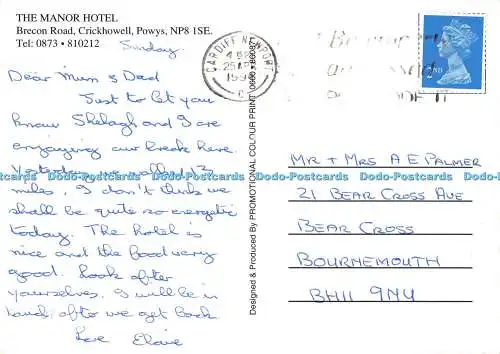 THE MANOR HOTEL
Brecon Road, Crickhowell, Powys, NP8 1SE.
Tel: 0873 • 810212
Sunday
Dear Mum & Dad
Just to let you
know Shelagh and I are
enjoying our break here.
Yesterday we walked 13
miles. I don't think we
shall be quite so energetic
today. The hotel is
nice and the food very
good. Look after
yourselves. I will be in
touch after we get back
Love Elaine
Designed & Produced By PROMOTIONAL COLOUR PRINT
CARDIFF NEWPORT
25 AP
2ND
MR + MRS A E PALMER
21 BEAR CROSS AVE
BEAR CROSS
BOURNEMOUTH
BH11 9NU
Dodo-Postcards Dodo-Postcards Dodo-Postcards Dodo-Postcards Dodo-Postcards